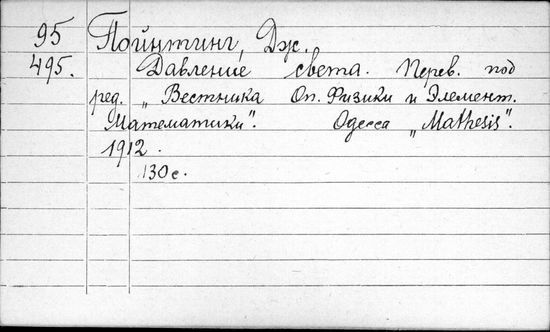 95 Пойнтинг, Дж.
495. Давление света. Перев. под
ред. „Вестника Оп. Физики и Элемент.
Математики". Одесса „Mathesis".
1912.
130 с.